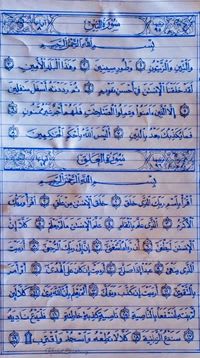 سورة التين
بسم الله الرحمن الرحيم
والتين والزيتون ١ وطور سينين ٢ وهذا البلد الأمين ٣
لقد خلقنا الإنسن في أحسن تقويم ٤ ثم رددنه أسفل سفلين
٥ إلا الذين ءامنوا وعملوا الصلحت فلهم أجر غير ممنون ٦
فما يكذبك بعد بالدين ٧ أليس الله بأحكم الحكمين ٨
سورة العلق
بسم الله الرحمن الرحيم
اقرأ باسم ربك الذي خلق ١ خلق الإنسن من علق ٢ اقرأ وربك
الأكرم ٣ الذي علم بالقلم ٤ علم الإنسن ما لم يعلم ٥ كلا إن
الإنسن ليطغى ٦ أن رءاه استغنى ٧ إن إلى ربك الرجعى ٨ أرءيت
الذي ينهى ٩ عبدا إذا صلى ١٠ أرءيت إن كان على الهدى ١١ أو أمر
بالتقوى ١٢ أرءيت إن كذب وتولى ١٣ ألم يعلم بأن الله يرى ١٤ كلا لئن
لم ينته لنسفعا بالناصية ١٥ ناصية كذبة خاطئة ١٦ فليدع ناديه
١٧ سندع الزبانية ١٨ كلا لا تطعه واسجد واقترب ١٩